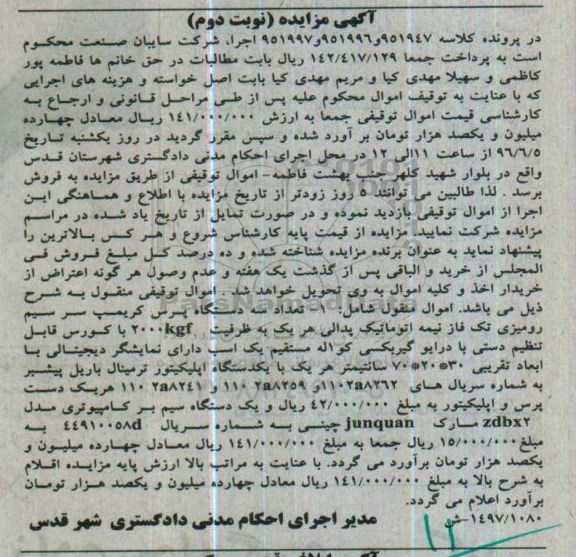 آگهی مزایده (نوبت دوم)
در پرونده کلاسه ۹۵۱۹۴۷و۹۵۱۹۹۶و۹۵۱۹۹۷ اجرا، شرکت سایبان صنعت محکوم
است به پرداخت جمعا ۱۴۲/۴۱۷/۱۲۹ ریال بابت مطالبات در حق خانم ها فاطمه پور
کاظمی و سهیلا مهدی کیا و مریم مهدی کیا بابت اصل خواسته و هزینه های اجرایی
که با عنایت به توقیف اموال محکوم علیه پس از طی مراحل قانونی و ارجاع به
کارشناسی قیمت اموال توقیفی جمعا به ارزش ۱۴۱/۰۰۰/۰۰۰ ریال معادل چهارده
میلیون و یکصد هزار تومان بر آورد شده و سپس مقرر گردید در روز یکشنبه تاریخ
۹۶/۶/۵ از ساعت ۱۱الی ۱۲ در محل اجرای احکام مدنی دادگستری شهرستان قدس
واقع در بلوار شهید کلهر جنب بهشت فاطمه- اموال توقیفی از طریق مزایده به فروش
برسد . لذا طالبین می توانند ۵ روز زودتر از تاریخ مزایده با اطلاع و هماهنگی این
اجرا از اموال توقیفی بازدید نموده و در صورت تمایل از تاریخ یاد شده در مراسم
مزایده شرکت نمایند. مزایده از قیمت پایه کارشناس شروع و هر کس بالاترین را
پیشنهاد نماید به عنوان برنده مزایده شناخته شده و ده درصد کل مبلغ فروش فی
المجلس از خرید و الباقی پس از گذشت یک هفته و عدم وصول هر گونه اعتراض از
خریدار اخذ و کلیه اموال به وی تحویل خواهد شد . اموال توقیفی منقول به شرح
ذیل می باشد. اموال منقول شامل: ۱- تعداد سه دستگاه پرس کریمپ سر سیم
رومیزی تک فاز نیمه اتوماتیک پدالی هر یک به ظرفیت ۲۰۰۰kgf با کورس قابل
تنظیم دستی با درایو گیربکسی کواله مستقیم یک اسب دارای نمایشگر دیجیتالی با
ابعاد تقریبی ۳۰*۲۰*۷۰ سانتیمتر هر یک با یکدستگاه اپلیکیتور ترمینال باریل پیشبر
به شماره سریال های ۱۱۰۲a۸۲۶۲و ۱۱۰ ۲a۸۲۵۹ و ۱۱۰ ۲a۸۲۴۱ هریک دست
پرس و اپلیکیتور به مبلغ ۴۲/۰۰۰/۰۰۰ ریال و یک دستگاه سیم بر کامپیوتری مدل
zdbx۲ مارک junquan چینی به شماره سریال ۴۴۹۱۰۰۵۸d به
مبلغ۱۵/۰۰۰/۰۰۰ ریال جمعا به مبلغ ۱۴۱/۰۰۰/۰۰۰ ریال معادل چهارده میلیون و
یکصد هزار تومان برآورد می گردد. با عنایت به مراتب بالا ارزش پایه مزایده اقلام
به شرح بالا به مبلغ ۱۴۱/۰۰۰/۰۰۰ ریال معادل چهارده میلیون و یکصد هزار تومان
برآورد اعلام می گردد.
۱۴۹۷/۱۰۸۰-ش مدیر اجرای احکام مدنی دادگستری شهر قدس